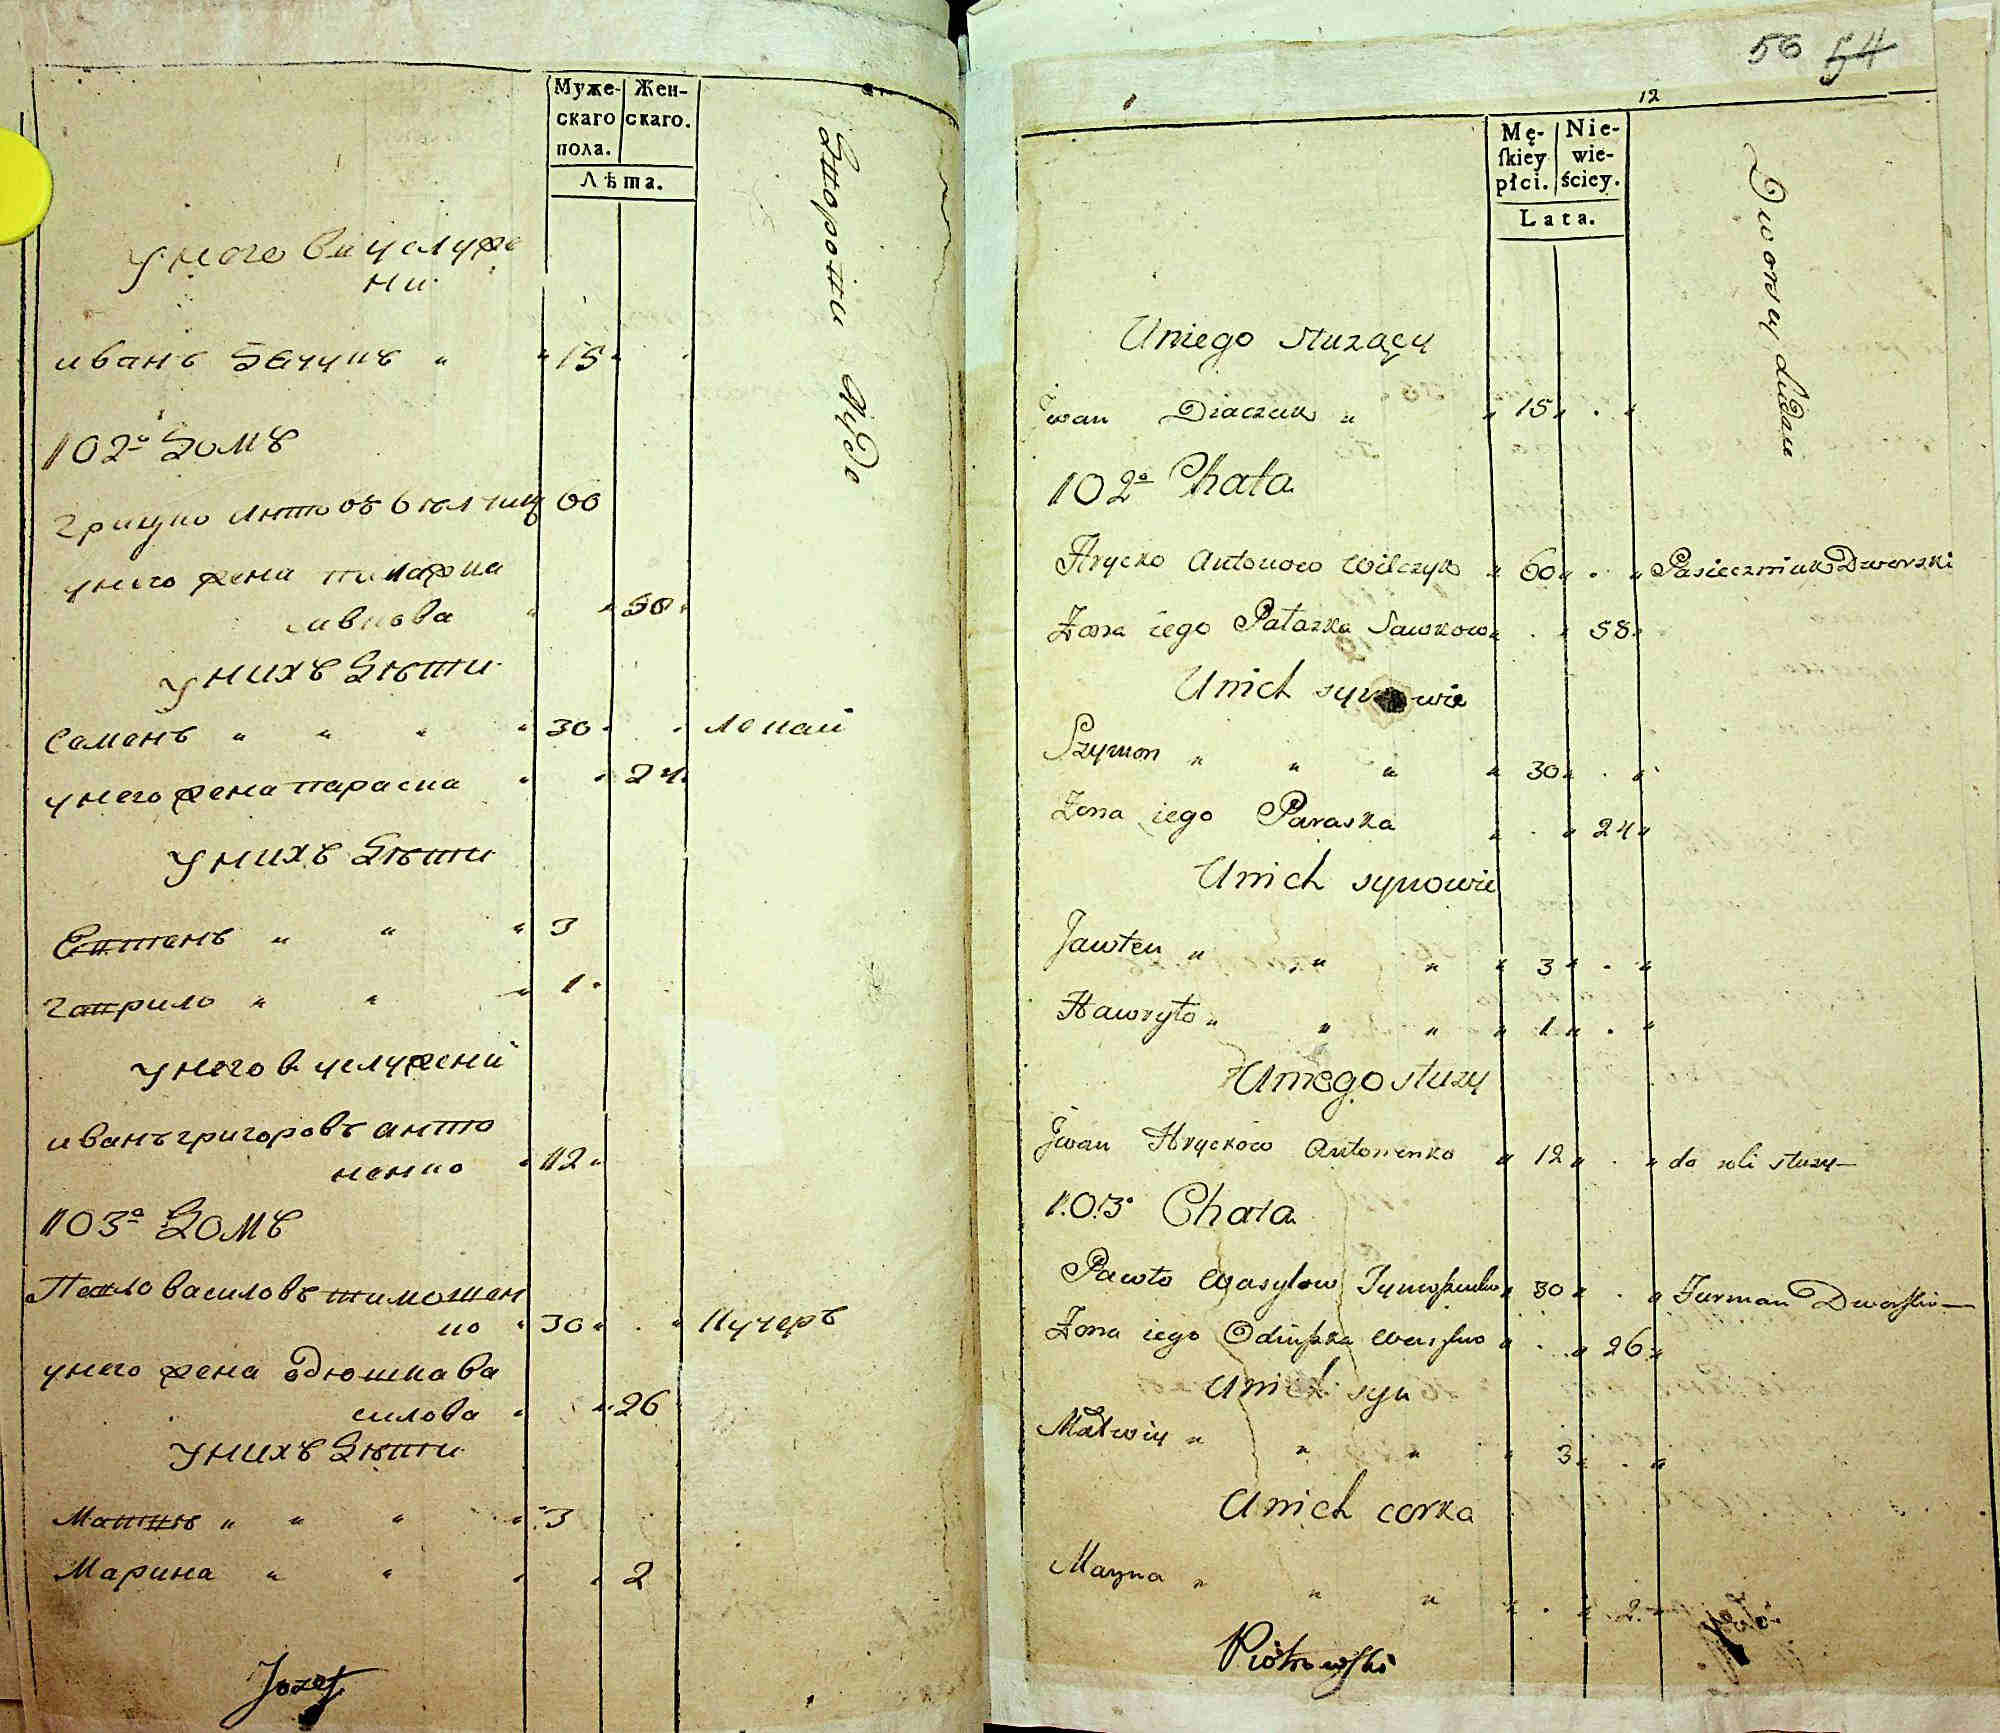 Муже-
скаго
пола.
Жен-
скаго.
Лѣта.
у него в услуже
ни
иванъ
15
102º Домъ
грицко антоовъ
60
у него жена палажка
савкова
58
у нихъ Дѣти
Семенъ
30
локай
у него жена параска
24
у нихъ Дѣти
Евтенъ
3
гаврило
1
у него в услужений
иванъ григоровъ анто
ненко
12
103º Домъ
Павло василовъ тимошен
ко
30
Кучеръ
у него жена одюшка ва
силова
26
у нихъ Дѣти
Матвѣ
3
Марина
2
Jozef
56 54
12
Mę-
skiey
płci.
Nie-
wie-
ściey.
Lata.
Dworscy Ludzie
U niego służący
iwan Draczuk
15
102º Chata
Hrycko Antonow Wilczyk
60
Pasiecznik Dworski
Zona iego Palaszka Sawkow
58
U nich synowie
Szymon
30
Zona iego Paraska
24
U nich synowie
Jawten
3
Hawryło
1
U niego służy
Jwan Hryckow Antonenko
12
do roli służy
103º Chata
Pawło Wasylow Tymoszenko
30
Furman Dworski
Zona iego Odiuszka Wasylowa
26
U nich syn
Matwiy
3
U nich corka
Maryna
2
Piotrowski